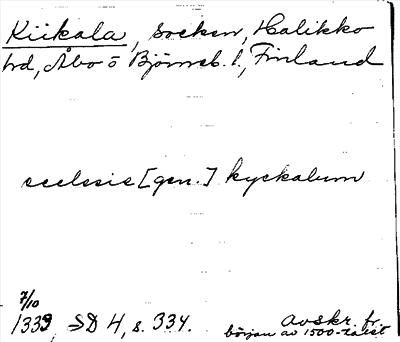 Kiikala, socken, Halikko
hd, Åbo o Björneb. l., Finland
ecclesie [gen.] kyckalum
7/10
1339, SD 4, s. 334.
Avskr. fr.
början av 1500-talet